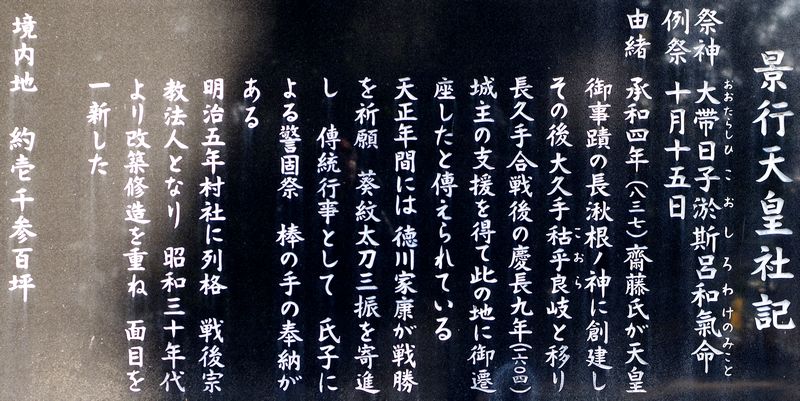 景行天皇社記
祭神 大帶日子淤斯呂和氣命
おおたらしひこおしろわけのみこと
例祭 十月十五日
由緒 承和四年(八三七)齋藤氏が天皇
御事蹟の長湫根ノ神に創建し
その後大久手秥平良岐と移り
こおら
長久手合戦後の慶長九年(一六〇四)
城主の支援を得て此の地に御遷
座したと傳えられている
天正年間には徳川家康が戦勝
を祈願 葵紋太刀三振を寄進
し 傳統行事として 氏子に
よる警固祭 棒の手の奉納が
ある
明治五年村社に列格 戦後宗
教法人となり 昭和三十年代
より改築修造を重ね 面目を
一新した
境内地 約壱千参百坪